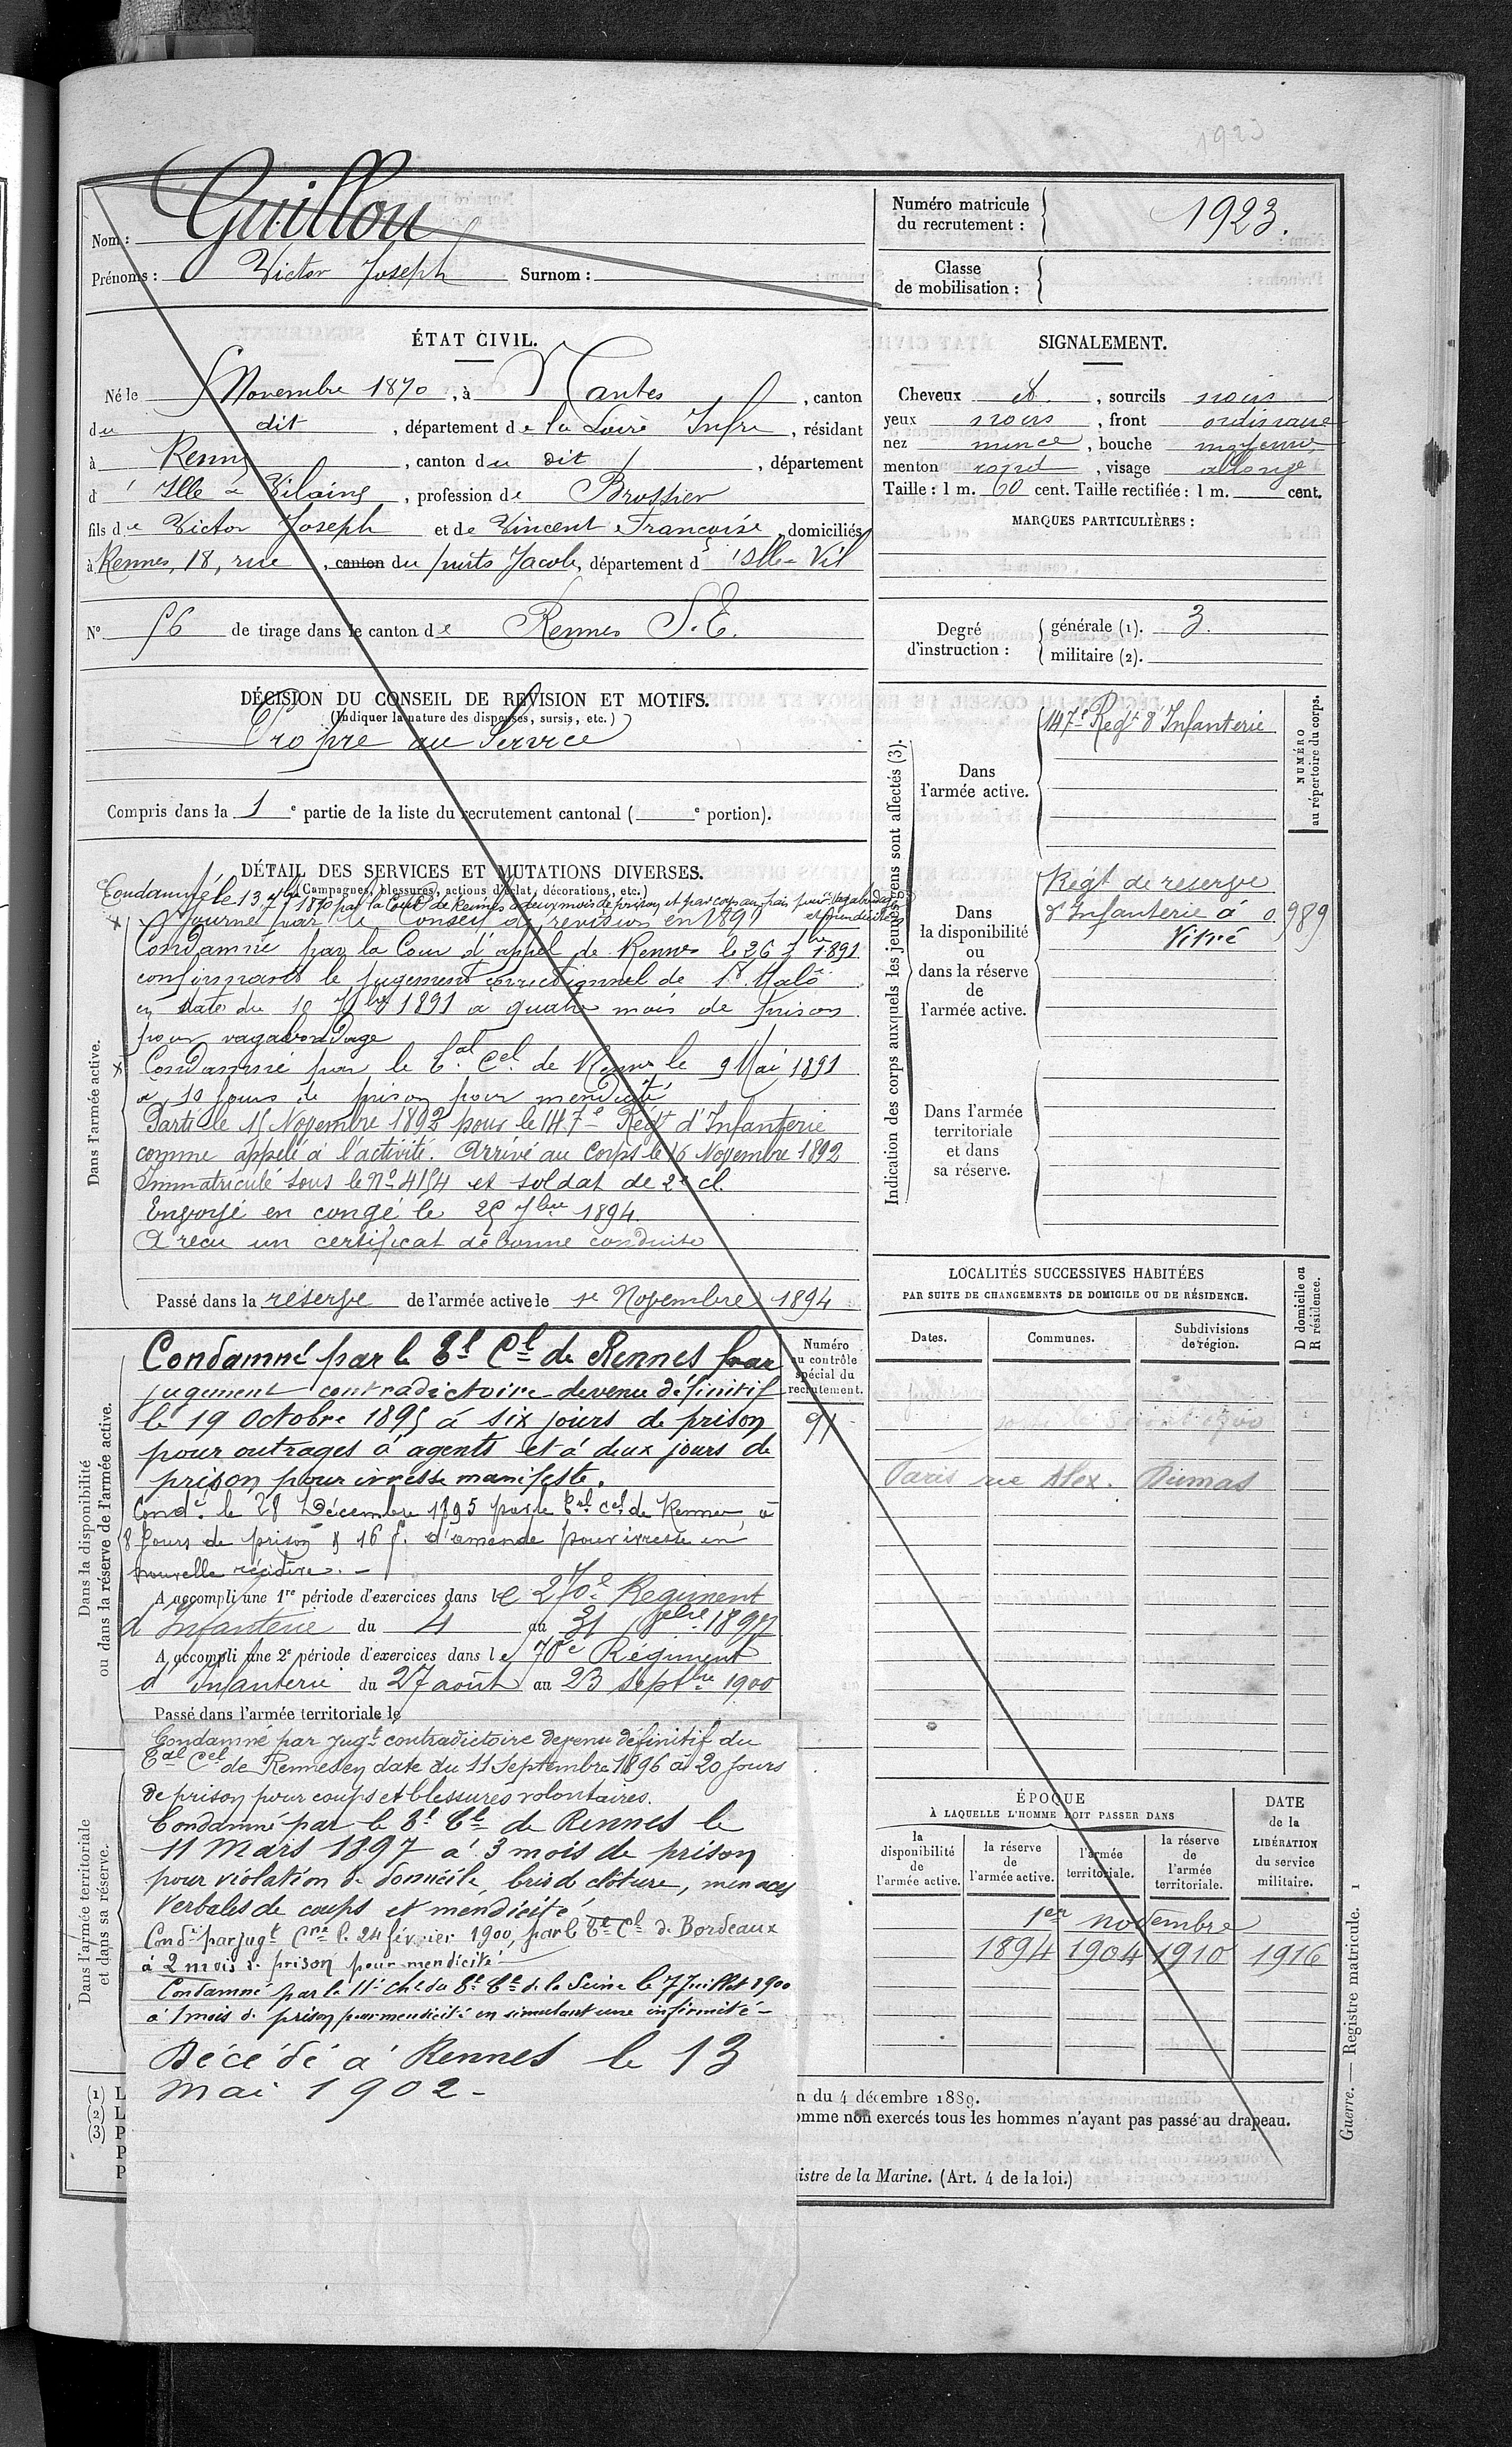 1923
Nom : Guillou
Prénoms : Victor Joseph Surnom :
Numéro matricule
du recrutement : 1923.
Classe
de mobilisation :
ÉTAT CIVIL.
Né le 5 Novembre 1870, à Nantes, canton
du dit, département de la Loire Infre, résidant
à Rennes, canton du dit, département
d'Ille & Vilaine, profession de Brossier
fils de Victor Joseph et de Vincent Françoise, domiciliés
à Rennes, 18, rue, canton du puits Jacob, département d'Ille-Vil
N° 56 de tirage dans le canton de Rennes S.E.
DÉCISION DU CONSEIL DE REVISION ET MOTIFS.
(Indiquer la nature des dispenses, sursis, etc.)
Propre au Service
Compris dans la 1e partie de la liste du recrutement cantonal (e portion).
DÉTAIL DES SERVICES ET MUTATIONS DIVERSES.
(Campagnes, blessures, actions d'éclat, décorations, etc.)
Condamné le 13 7bre 1890 par la Cour de Rennes à deux mois de prison et par corps aux frais pour vagabondage
et mendicité
Ajourné par le Conseil de revision en 1891
Condamné par la Cour d'appel de Rennes le 26 7bre 1891
confirmant le jugement correctionnel de St. Malo
en date du 10 7bre 1891 a quatre mois de prison
pour vagabondage
x Condamné par le Tal Cel de Rennes le 9 Mai 1891
a 10 jours de prison pour mendicité
Parti le 15 Novembre 1892 pour le 147e Régt d'Infanterie
comme appelé à l'activité. Arrivé au Corps le 16 Novembre 1892
Immatriculé sous le No 4154 et soldat de 2e cl.
Envoyé en congé le 25 7bre 1894.
A reçu un certificat de bonne conduite
Passé dans la réserve de l'armée active le 1er Novembre 1894
Dans l'armée active.
Condamné par le Tl Cl de Rennes par
jugement contradictoire devenu définitif
le 19 Octobre 1895 à six jours de prison
pour outrages à agents et à deux jours de
prison pour ivresse manifeste.
Condé. le 28 Décembre 1895 par le Trl Cel de Rennes, à
8 jours de prison & 16 f. d'amende pour ivresse en
nouvelle récidive. -
Numéro
au contrôle
spécial du
recrutement.
91
A accompli une 1re période d'exercices dans le 270e Régiment
d'Infanterie du 4 au 31 1897
A accompli une 2e période d'exercices dans le 70e Régiment
d'Infanterie du 27 août au 23 Septbre 1900
Passé dans l'armée territoriale le
Dans la disponibilité
ou dans la réserve de l'armée active.
Condamné par Jugt contradictoire devenu définitif du
Tal Cel de Rennes en date du 11 Septembre 1896 à 20 jours
de prison pour coups et blessures volontaires.
Condamné par le Tl Cl de Rennes le
11 Mars 1897 à 3 mois de prison
pour violation de domicile, bris de clôture, menaces
verbales de coups et mendicité
Condé par jugt Cre le 24 février 1900, par le Tl Cl de Bordeaux
à 2 mois de prison pour mendicité
Condamné par la 11e Che du Tl Cl de la Seine le 7 Juillet 1900
à 1 mois de prison pour mendicité en simulant une infirmité -
Décédé à Rennes le 13
mai 1902 -
Dans l'armée territoriale
et dans sa réserve.
(1) L
(2) L
(3) P
P
P
SIGNALEMENT.
Cheveux d., sourcils noirs
yeux noirs, front ordinaire
nez mince, bouche moyenne
menton rond, visage allongé
Taille : 1 m. 60 cent. Taille rectifiée : 1 m. cent.
MARQUES PARTICULIÈRES :
Degré
d'instruction :
générale (1). 3.
militaire (2).
Indication des corps auxquels les jeunes gens sont affectés (3).
NUMÉRO
au répertoire du corps.
Dans
l'armée active.
147e Régt d'Infanterie
Dans
la disponibilité
ou
dans la réserve
de
l'armée active.
Régt de réserve
d'Infanterie à 0989
Vitré
Dans l'armée
territoriale
et dans
sa réserve.
LOCALITÉS SUCCESSIVES HABITÉES
PAR SUITE DE CHANGEMENTS DE DOMICILE OU DE RÉSIDENCE.
D domicile ou
R résidence.
Dates. Communes. Subdivisions
de région.
Paris rue Alex. Dumas
ÉPOQUE
À LAQUELLE L'HOMME DOIT PASSER DANS
DATE
de la
LIBÉRATION
du service
militaire.
la
disponibilité
de
l'armée active.
la réserve
de
l'armée active.
l'armée
territoriale.
la réserve
de
l'armée
territoriale.
1er novembre
1894 1904 1910 1916
n du 4 décembre 1889.
omme non exercés tous les hommes n'ayant pas passé au drapeau.
istre de la Marine. (Art. 4 de la loi.)
Guerre. — Registre matricule. 1